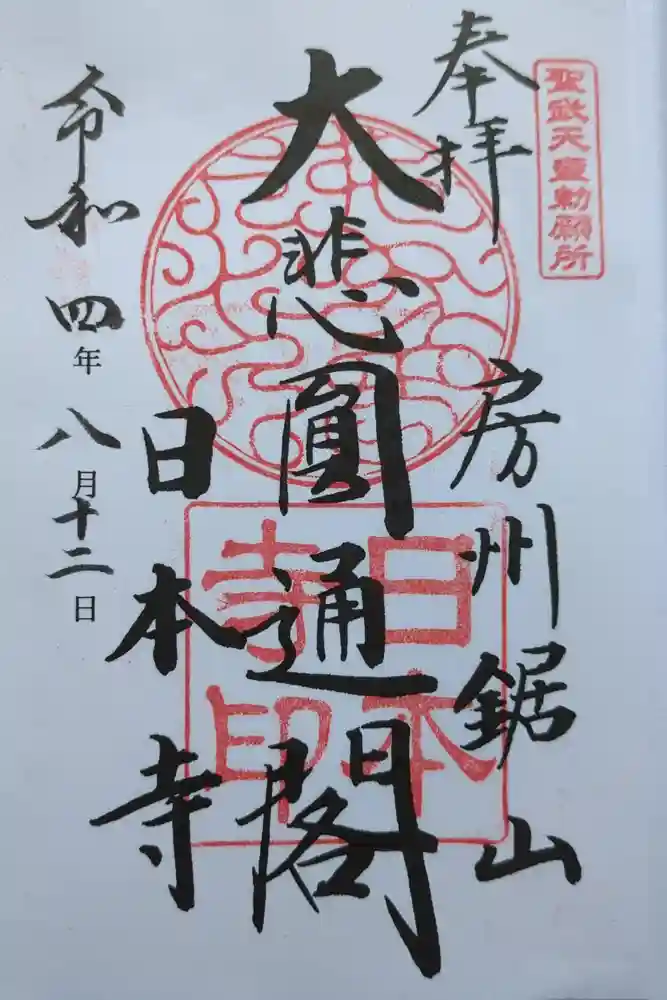 聖武天皇勅願所
奉拝
房州鋸山
大悲圓通閣
日本寺
日本
寺印
令和四年八月十二日